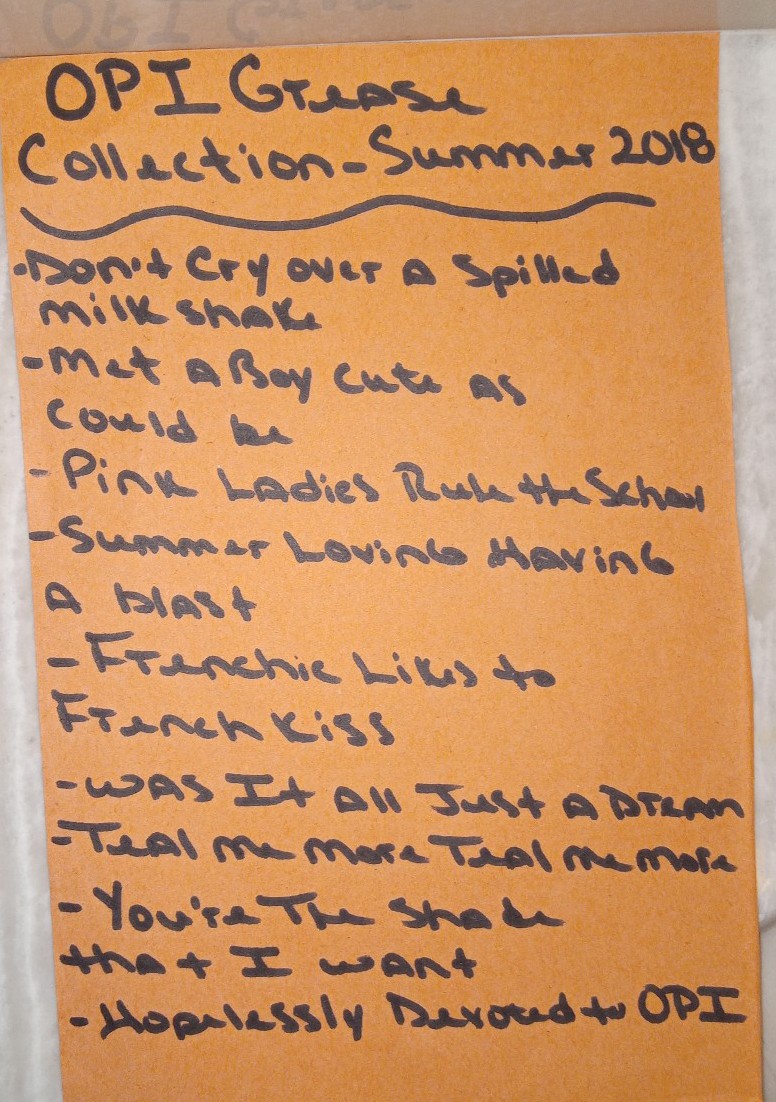 OPI Grease
Collection - Summer 2018
-Don't Cry over A Spilled
milkshake
-Met A Boy Cute As
Could be
-Pink Ladies Rule the School
-Summer Loving Having
A blast
-Frenchie Likes to
French Kiss
-was It All Just A Dream
-Teal me more Teal me more
-You're The Shade
that I want
-Hopelessly Devoted to OPI